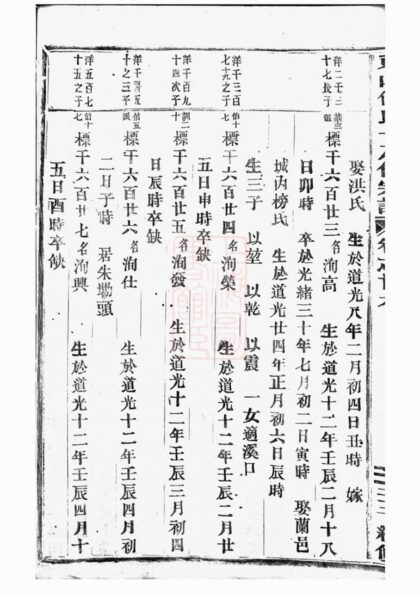 娶洪氏 生於道光八年二月初四日丑時 嫁
洋千二十三
十七長子
標千六百廿三名洵高 生於道光十二年壬辰二月十八
日卯時 卒於光緒三十年七月初二日寅時 娶蘭邑
城內榜氏 生於道光廿四年正月初六日辰時
生三子 以堃 以乾 以震 一女適溪口
洋千三百
七十九之子
標千六百廿四名洵榮 生於道光十二年壬辰二月廿
五日申時卒缺
洋千百九
十四次子
標千六百廿五名洵發 生於道光十二年壬辰三月初四
日辰時卒缺
十之三子
標千六百廿六名洵仕 生於道光十二年壬辰四月初
二日子時 居朱塘頭
洋五百七
十五之子
標千六百廿七名洵興 生於道光十二年壬辰四月十
五日酉時卒缺